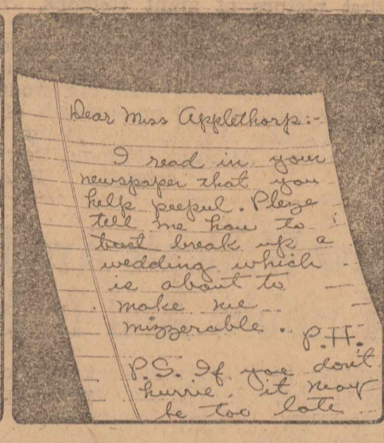 Dear Miss Applethorp:-
I read in your
newspaper that you
help peepul. Pleze
tell me how to
bust break up a
wedding which
is about to
make me
mizzerable..
P.H.
P.S. If you don't
hurrie, it may
be too late